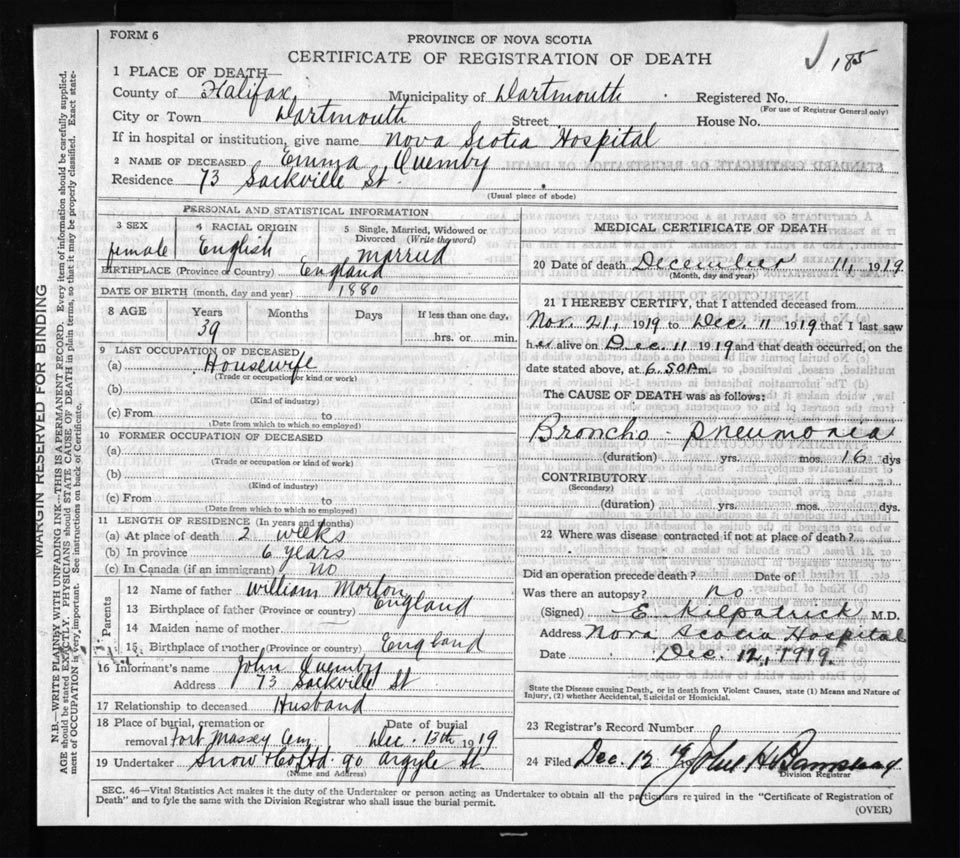 FORM 6
PROVINCE OF NOVA SCOTIA
CERTIFICATE OF REGISTRATION OF DEATH
185
1 PLACE OF DEATH—
County of Halifax Municipality of Dartmouth Registered No.
(For use of Registrar General only)
City or Town Dartmouth Street House No.
If in hospital or institution, give name Nova Scotia Hospital
2 NAME OF DECEASED Emma Quemby
Residence 73 Sackville St.
(Usual place of abode)
PERSONAL AND STATISTICAL INFORMATION
3 SEX female
4 RACIAL ORIGIN English
5 Single, Married, Widowed or Divorced (Write the word) married
BIRTHPLACE (Province or Country) England
DATE OF BIRTH (month, day and year) 1880
8 AGE Years 39 Months Days If less than one day, hrs. or min.
9 LAST OCCUPATION OF DECEASED
(a) Housewife
(Trade or occupation or kind or work)
(b)
(Kind of industry)
(c) From to
(Date from which to which so employed)
10 FORMER OCCUPATION OF DECEASED
(a)
(Trade or occupation or kind of work)
(b)
(Kind of industry)
(c) From to
(Date from which to which so employed)
11 LENGTH OF RESIDENCE (In years and months)
(a) At place of death 2 weeks
(b) In province 6 years
(c) In Canada (if an immigrant) no
Parents
12 Name of father William Morton
13 Birthplace of father (Province or country) England
14 Maiden name of mother
15 Birthplace of mother (Province or country) England
16 Informant's name John Quemby
Address 73 Sackville St
17 Relationship to deceased Husband
18 Place of burial, cremation or removal Fort Massey Cem. Date of burial Dec. 13th 1919
19 Undertaker Snow & Co Ltd. 90 Argyle St.
(Name and Address)
MEDICAL CERTIFICATE OF DEATH
20 Date of death December 11, 1919
(Month, day and year)
21 I HEREBY CERTIFY, that I attended deceased from
Nov. 21, 1919 to Dec. 11 1919 that I last saw
her alive on Dec. 11 1919 and that death occurred, on the
date stated above, at 6.50 P.m.
The CAUSE OF DEATH was as follows:
Broncho-pneumonia
(duration) yrs. mos. 16 dys
CONTRIBUTORY
(Secondary)
(duration) yrs. mos. dys.
22 Where was disease contracted if not at place of death?
Did an operation precede death? Date of
Was there an autopsy? no
(Signed) E. Kilpatrick M.D.
Address Nova Scotia Hospital
Date Dec. 12, 1919.
State the Disease causing Death, or in death from Violent Causes, state (1) Means and Nature of
Injury, (2) whether Accidental, Suicidal or Homicidal.
23 Registrar's Record Number
24 Filed Dec. 12 19 John H.
Division Registrar
SEC. 46—Vital Statistics Act makes it the duty of the Undertaker or person acting as Undertaker to obtain all the particulars required in the "Certificate of Registration of
Death" and to fyle the same with the Division Registrar who shall issue the burial permit.
(OVER)
MARGIN RESERVED FOR BINDING
N.B.—WRITE PLAINLY WITH UNFADING INK—THIS IS A PERMANENT RECORD. Every item of information should be carefully supplied.
AGE should be stated EXACTLY. PHYSICIANS should STATE CAUSE OF DEATH in plain terms, so that it may be properly classified. Exact state-
ment of OCCUPATION is very important. See instructions on back of Certificate.